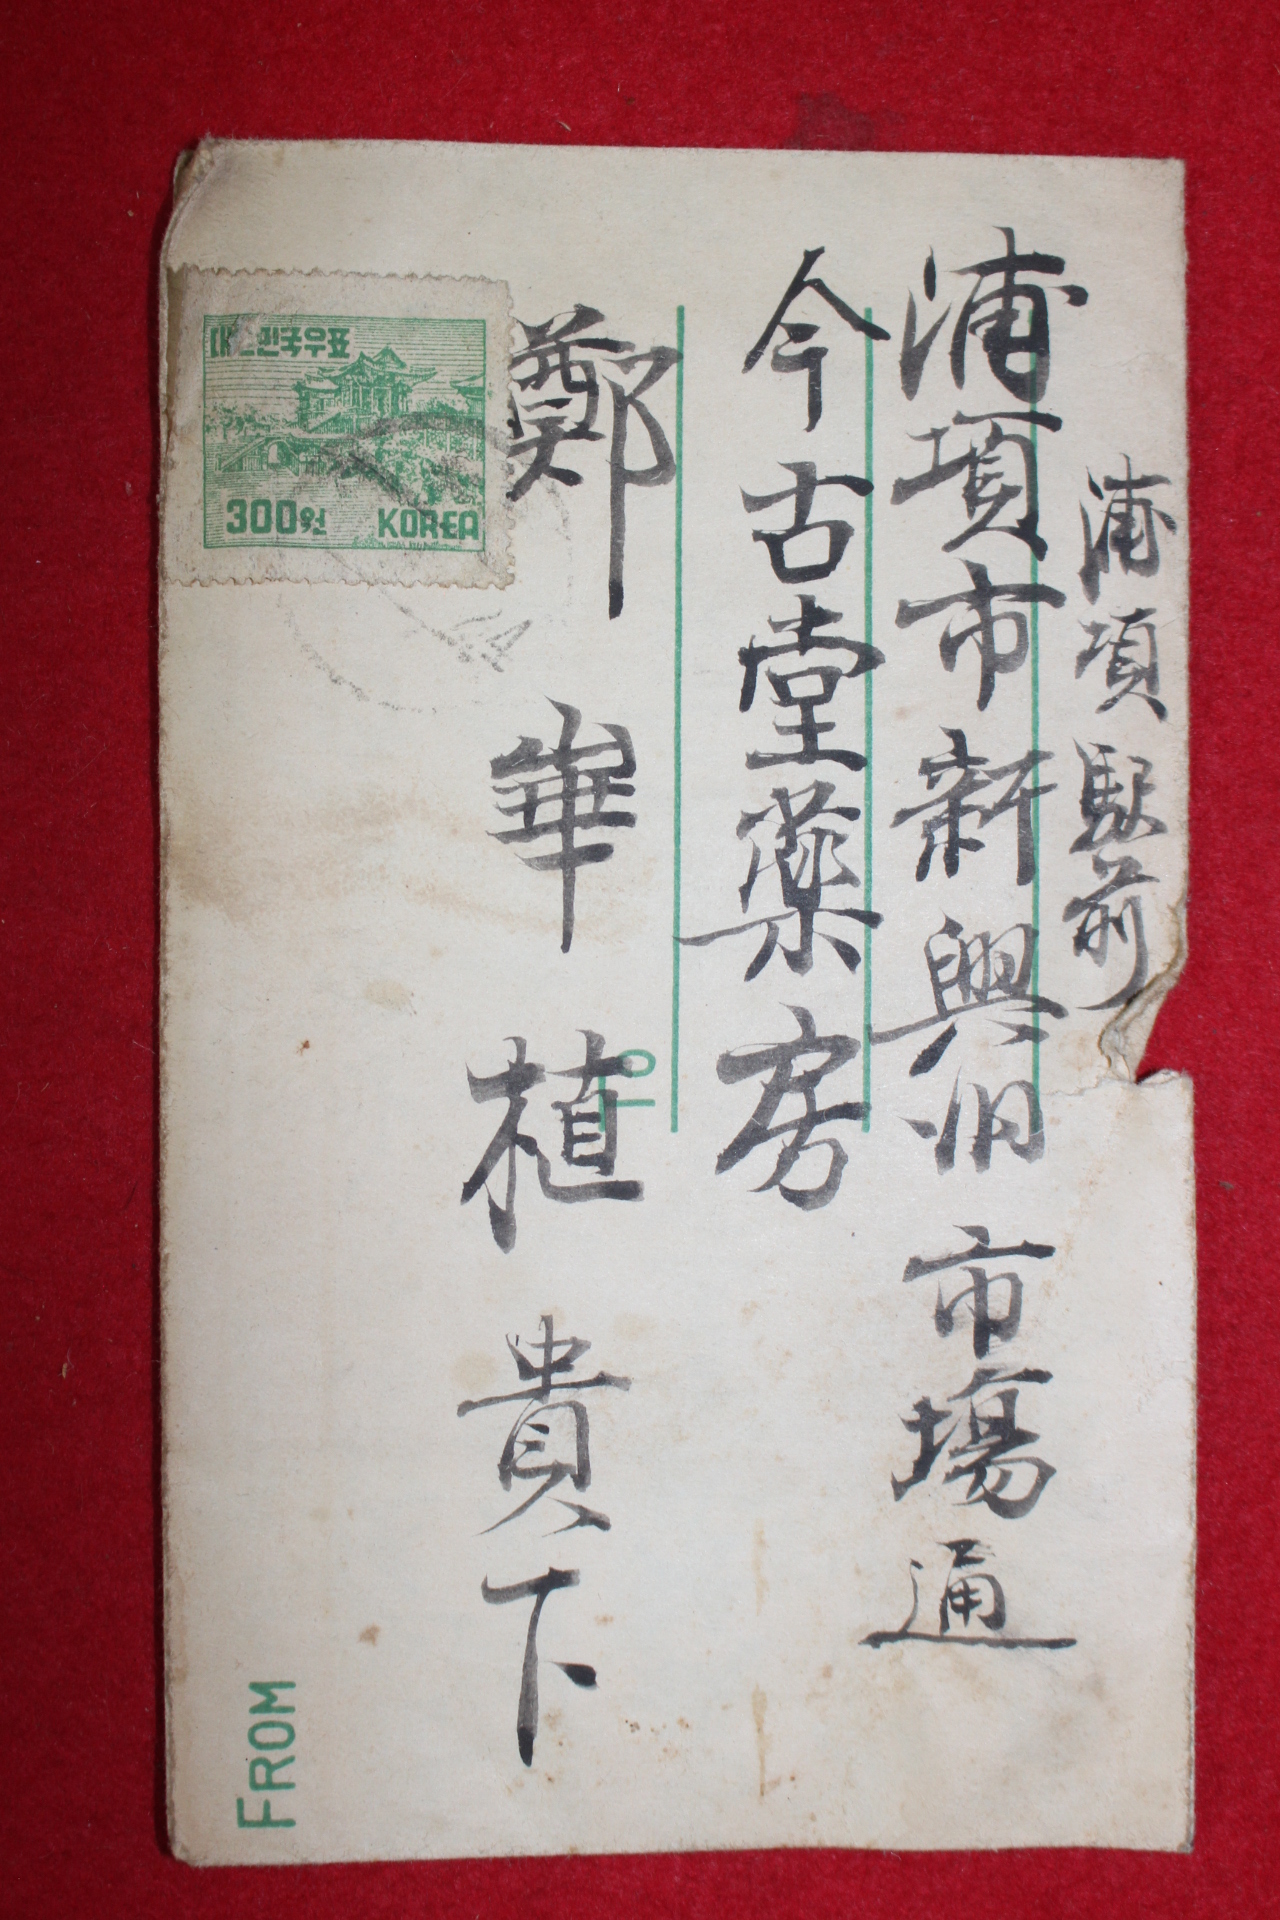 浦項駅前
浦項市新興旧市場通
今古堂薬房
鄭華植貴下
대한민국우표
300원 KOREA
TO
FROM